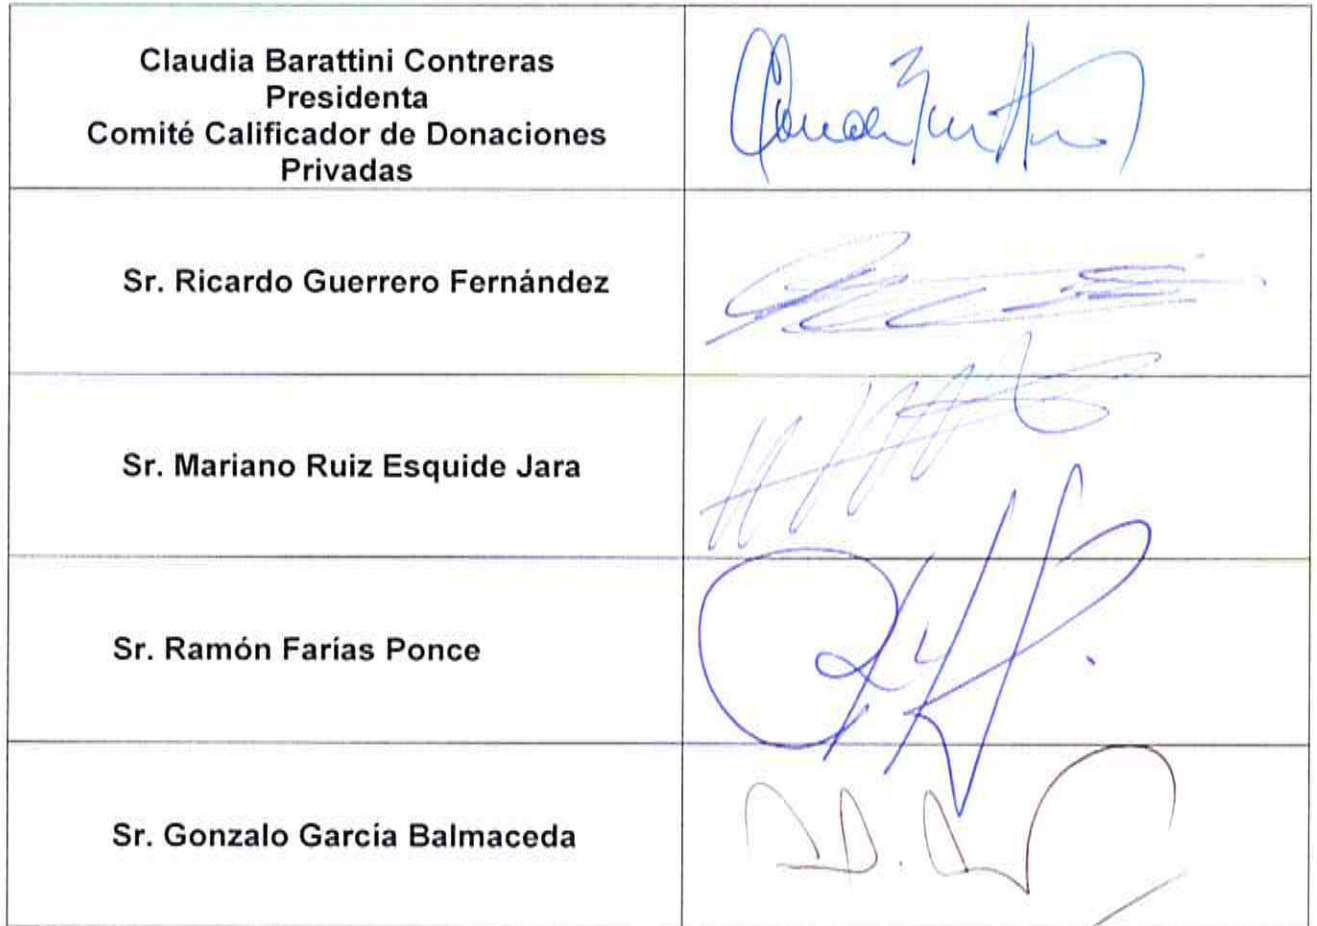 Claudia Barattini Contreras
Presidenta
Comité Calificador de Donaciones
Privadas
Sr. Ricardo Guerrero Fernández
Sr. Mariano Ruiz Esquide Jara
Sr. Ramón Farías Ponce
Sr. Gonzalo García Balmaceda